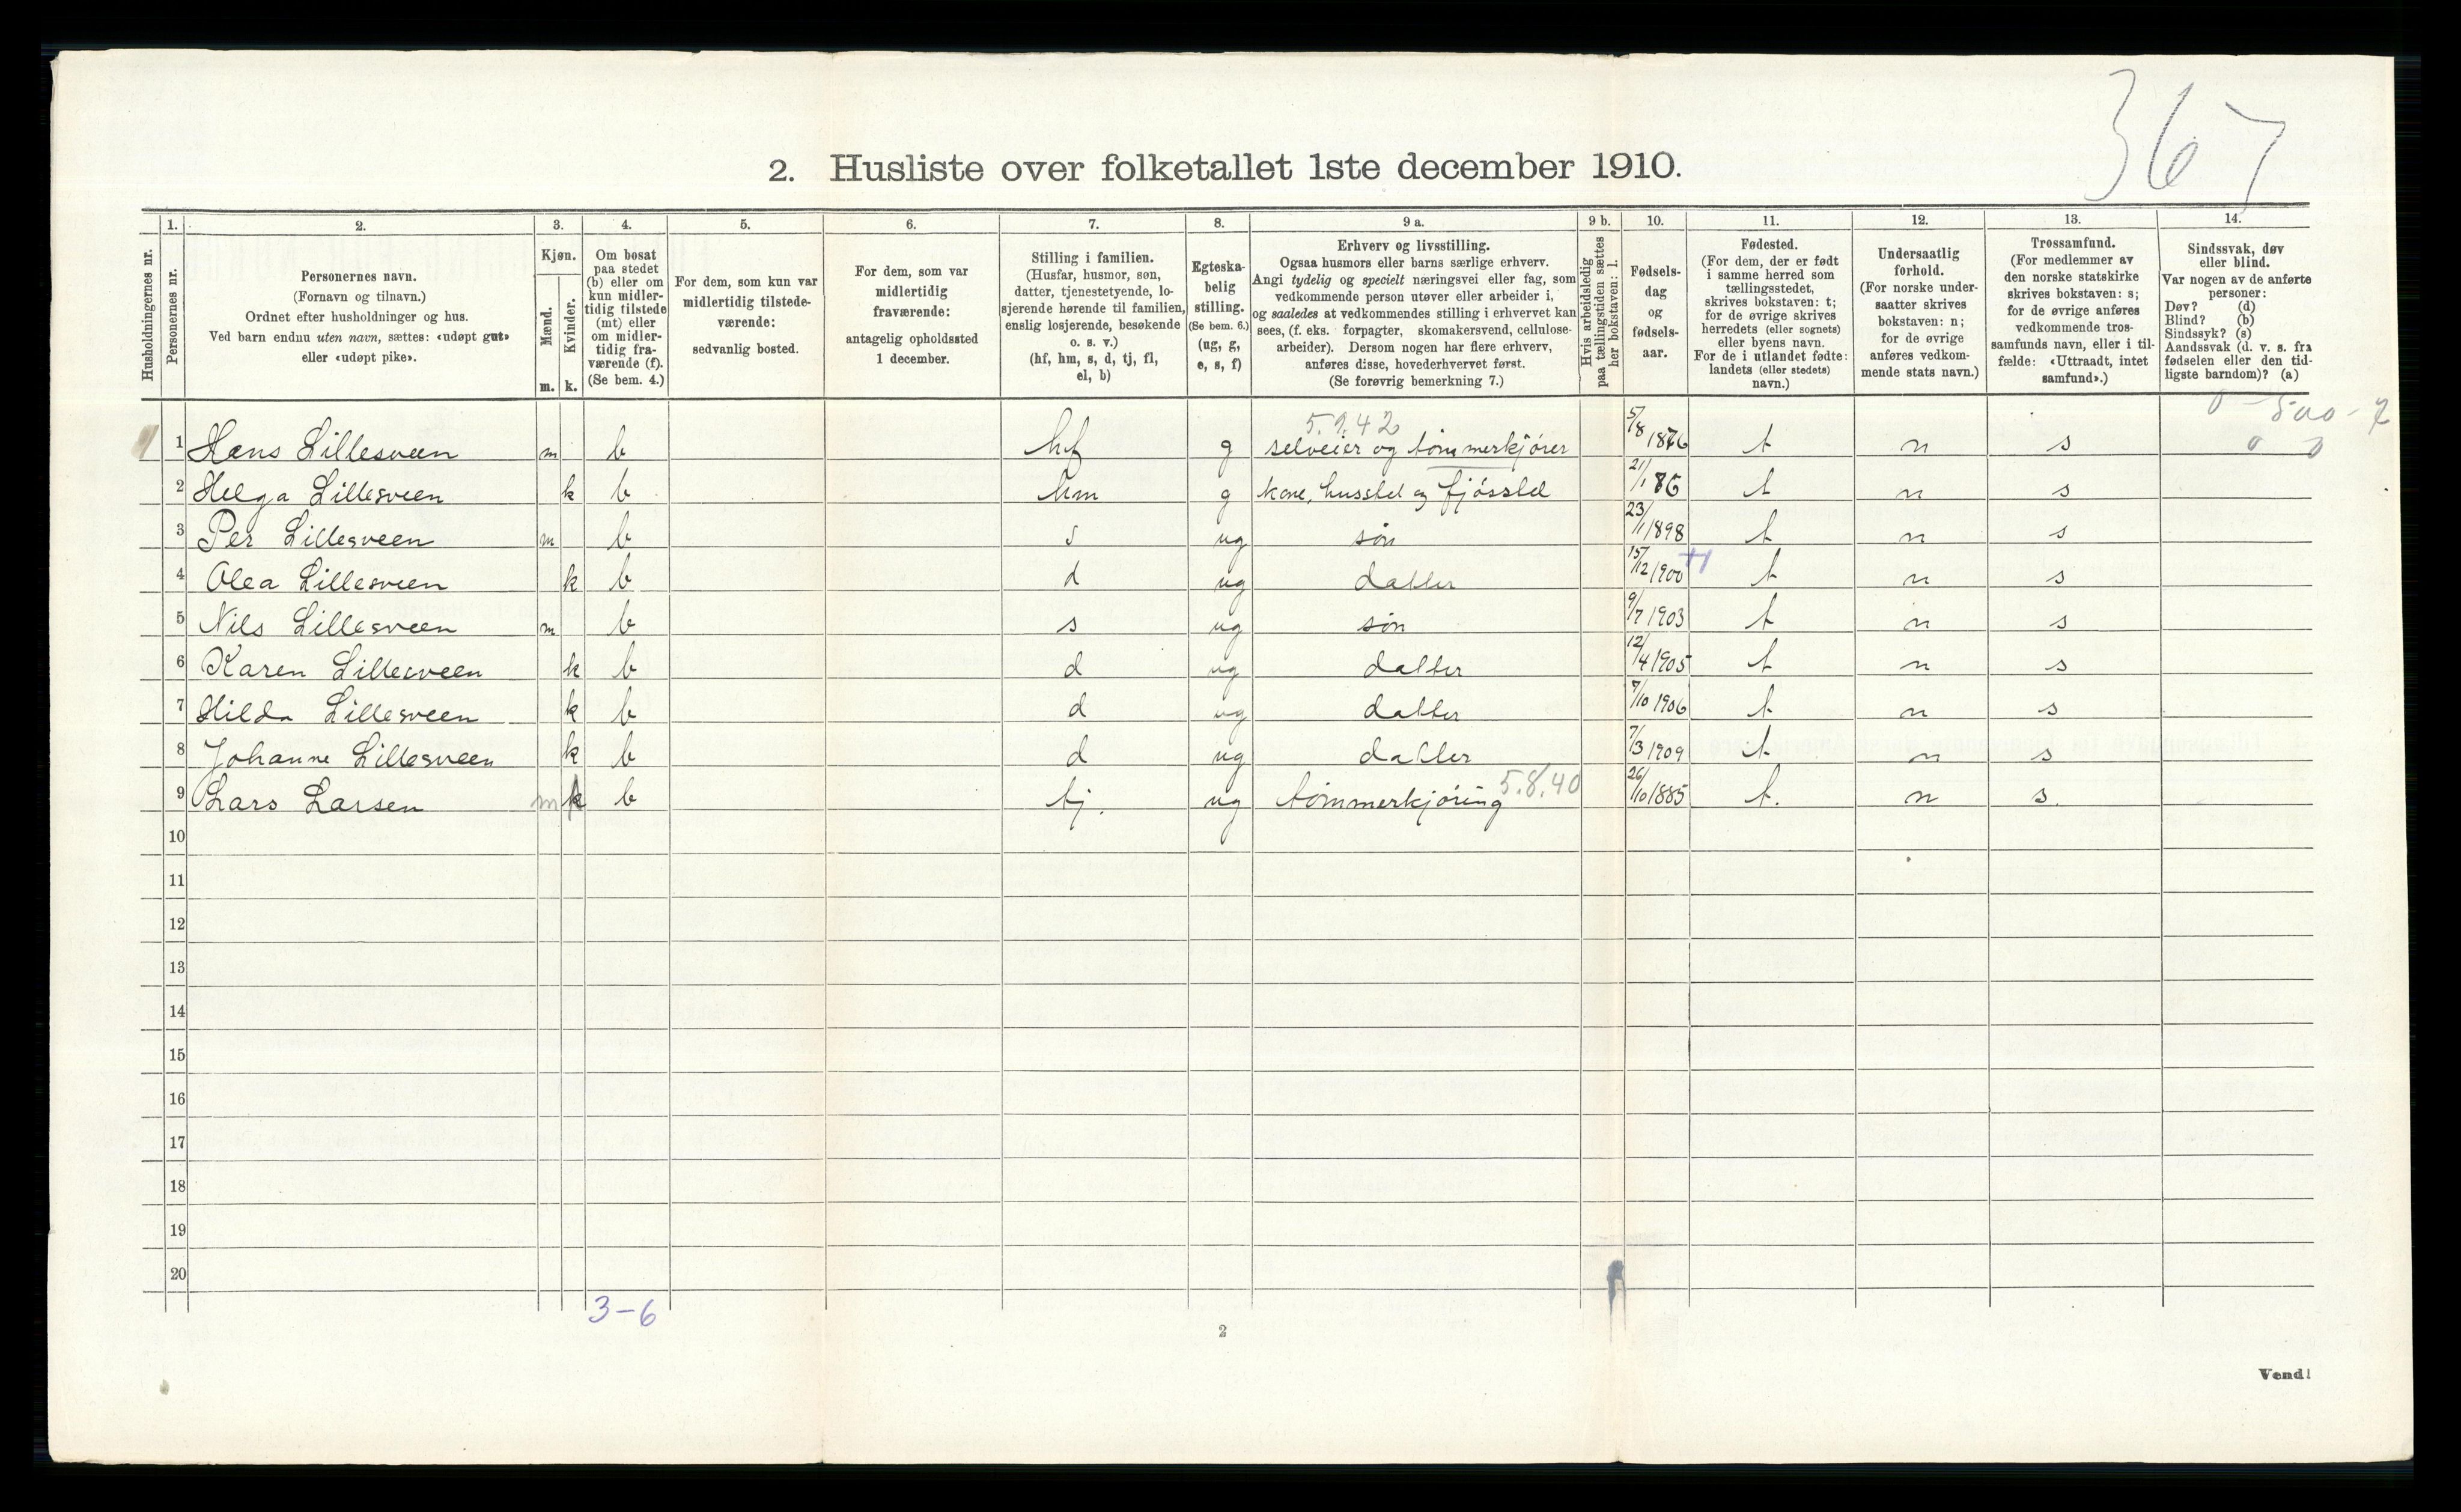 367
2. Husliste over folketallet 1ste december 1910.
Husholdningernes nr.
1. Personernes nr.
2. Personernes navn.
(Fornavn og tilnavn.)
Ordnet efter husholdninger og hus.
Ved barn endnu uten navn, sættes: «udøpt gut»
eller «udøpt pike».
3. Kjøn.
Mænd. m.
Kvinder. k.
4. Om bosat
paa stedet
(b) eller om
kun midler-
tidig tilstede
(mt) eller
om midler-
tidig fra-
værende (f).
(Se bem. 4.)
5. For dem, som kun var
midlertidig tilstede-
værende:
sedvanlig bosted.
6. For dem, som var
midlertidig
fraværende:
antagelig opholdssted
1 december.
7. Stilling i familien.
(Husfar, husmor, søn,
datter, tjenestetyende, lo-
sjerende hørende til familien,
enslig losjerende, besøkende
o. s. v.)
(hf, hm, s, d, tj, fl,
el, b)
8. Egteska-
belig
stilling.
(Se bem. 6.)
(ug, g,
e, s, f)
9 a. Erhverv og livsstilling.
Ogsaa husmors eller barns særlige erhverv.
Angi tydelig og specielt næringsvei eller fag, som
vedkommende person utøver eller arbeider i,
og saaledes at vedkommendes stilling i erhvervet kan
sees, (f. eks. forpagter, skomakersvend, cellulose-
arbeider). Dersom nogen har flere erhverv,
anføres disse, hovederhvervet først.
(Se forøvrig bemerkning 7.)
9 b. Hvis arbeidsledig
paa tællingstiden sættes
her bokstaven: l.
10. Fødsels-
dag
og
fødsels-
aar.
11. Fødested.
(For dem, der er født
i samme herred som
tællingsstedet,
skrives bokstaven: t;
for de øvrige skrives
herredets (eller sognets)
eller byens navn.
For de i utlandet fødte:
landets (eller stedets)
navn.)
12. Undersaatlig
forhold.
(For norske under-
saatter skrives
bokstaven: n;
for de øvrige
anføres vedkom-
mende stats navn.)
13. Trossamfund.
(For medlemmer av
den norske statskirke
skrives bokstaven: s;
for de øvrige anføres
vedkommende tros-
samfunds navn, eller i til-
fælde: «Uttraadt, intet
samfund».)
14. Sindssvak, døv
eller blind.
Var nogen av de anførte
personer:
Døv? (d)
Blind? (b)
Sindssyk? (s)
Aandssvak (d. v. s. fra
fødselen eller den tid-
ligste barndom)? (a)
0 - 500 - 2
5.9.42 0 0
1 1 Hans Lillesveen m b hf g selveier og tømmerkjører 5/8 1876 t n s
2 Helga Lillesveen k b hm g kone, husstel og fjøsstel 21/1 76 t n s
3 Per Lillesveen m b s ug søn 23/1 1898 t n s
4 Olea Lillesveen k b d ug datter 15/12 1900 t n s
5 Nils Lillesveen m b s ug søn 9/7 1903 t n s
6 Karen Lillesveen k b d ug datter 12/4 1905 t n s
7 Hilda Lillesveen k b d ug datter 7/10 1906 t n s
8 Johanne Lillesveen k b d ug datter 7/3 1909 t n s
9 Lars Larsen m k b tj. ug tømmerkjøring 5.8.40 26/10 1885 t. n s.
10
11
12
13
14
15
16
17
18
19
20
3-6
2
Vend!